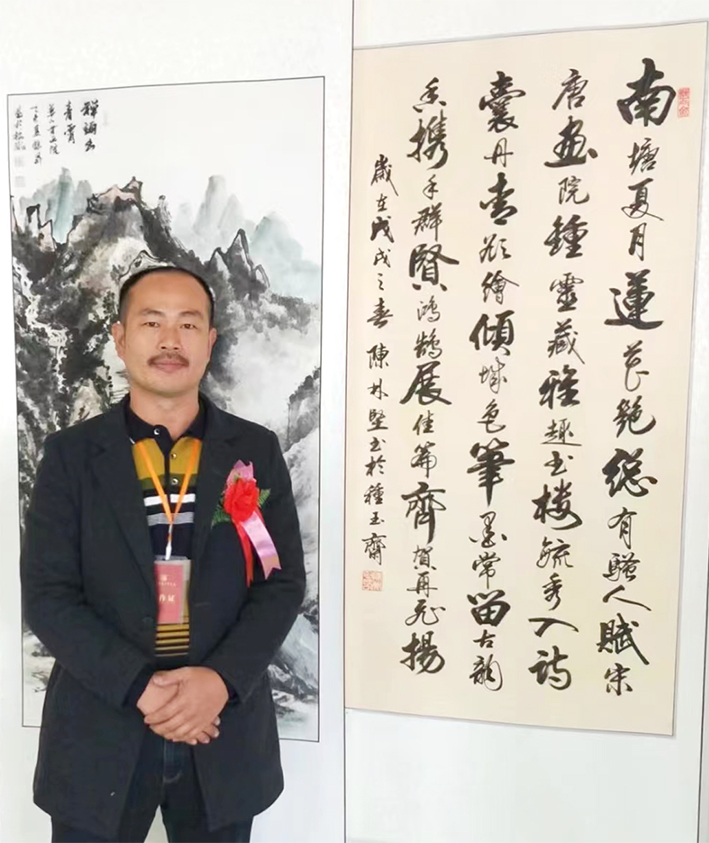 南塘夏月蓮花艷總有騷人賦宋
唐画院鍾靈藏雅趣书楼毓秀入詩
囊丹青欲繪傾城色筆墨常留古韻
香携手群賢鴻鵠展佳篇齊賀再飛揚
歲在戊戌之春陳林堅书於種玉齋
青霄